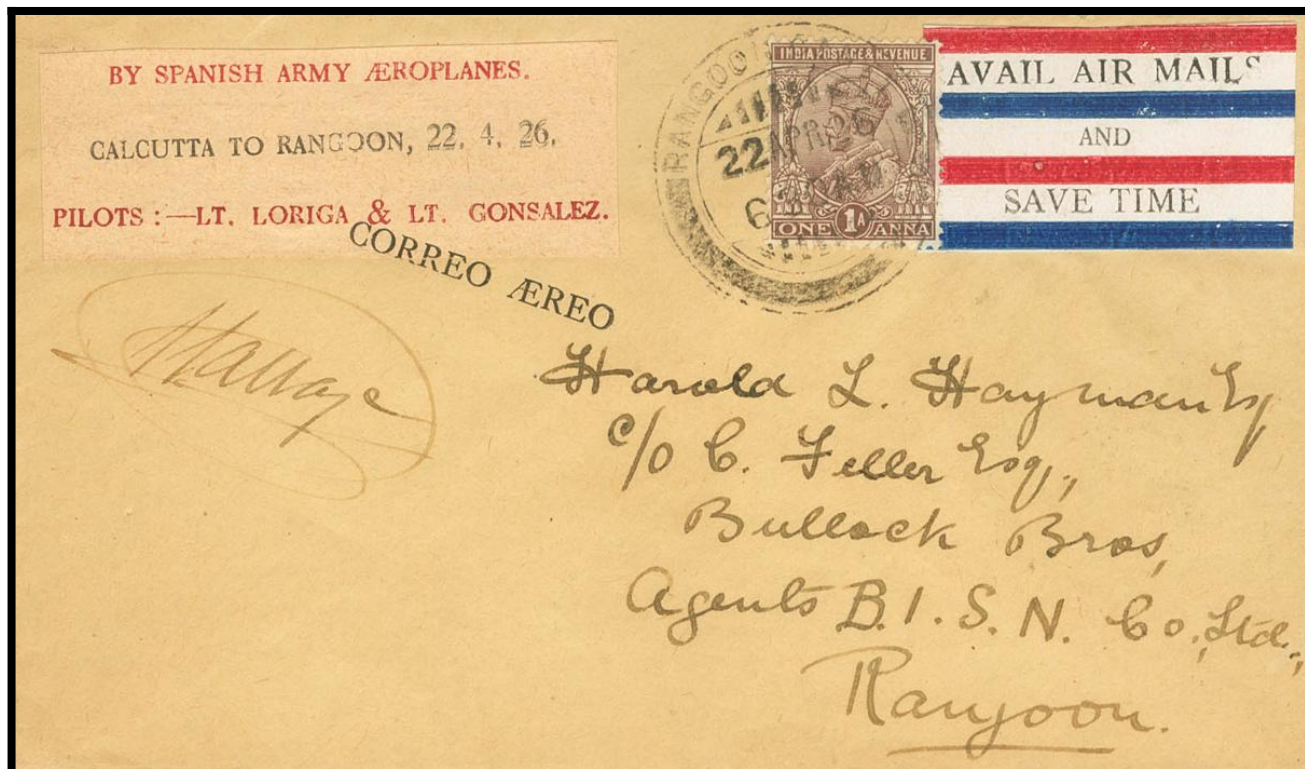 BY SPANISH ARMY ÆROPLANES.
CALCUTTA TO RANGOON, 22. 4. 26.
PILOTS :—LT. LORIGA & LT. GONSALEZ.
CORREO ÆREO
RANGOO
22 APR 26
6
INDIA POSTAGE & REVENUE
ONE 1A ANNA
AVAIL AIR MAILS
AND
SAVE TIME
Harold L. Hayman Esq
c/o C. Feller Esq.,
Bullock Bros,
Agents B.I.S.N. Co., Ltd.,
Rangoon.